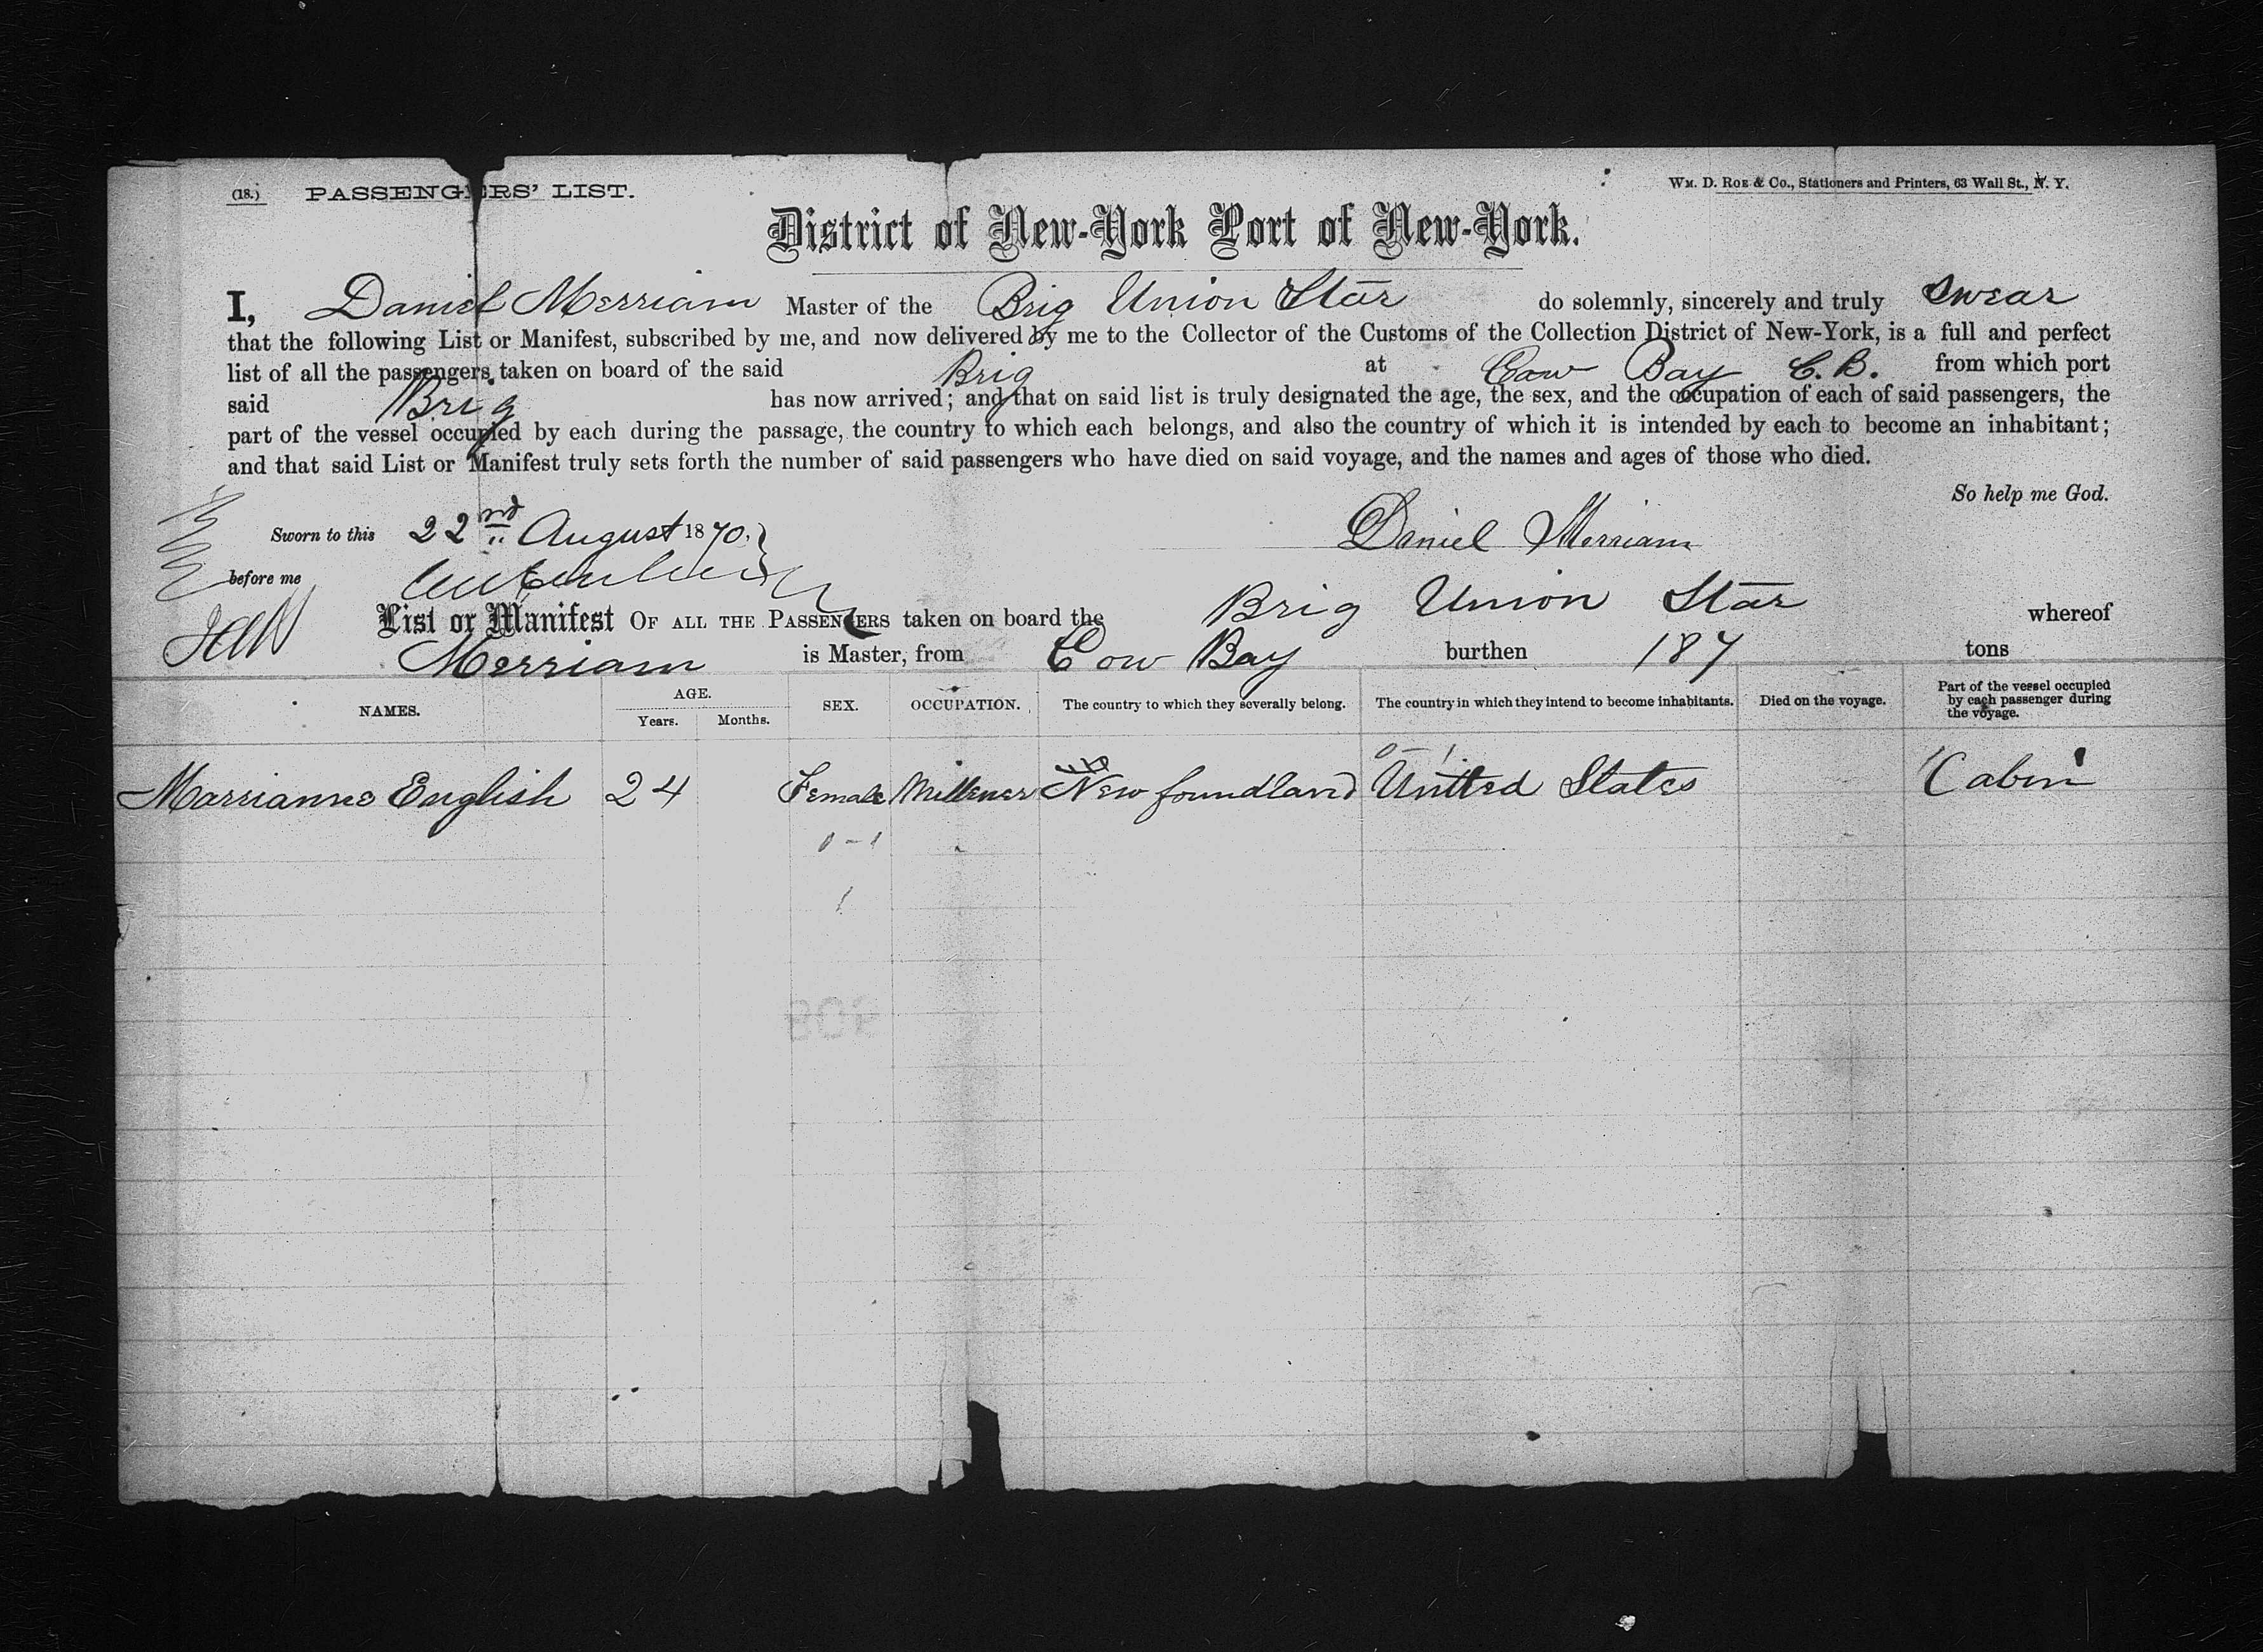 (18.) PASSENGERS' LIST.
WM. D. ROE & Co., Stationers and Printers, 63 Wall St., N. Y.
District of New-York Port of New-York.
I, Daniel Merriam Master of the Brig Union Star do solemnly, sincerely and truly swear
that the following List or Manifest, subscribed by me, and now delivered by me to the Collector of the Customs of the Collection District of New-York, is a full and perfect
list of all the passengers taken on board of the said Brig at Cow Bay C. B. from which port
said Brig has now arrived; and that on said list is truly designated the age, the sex, and the occupation of each of said passengers, the
part of the vessel occupied by each during the passage, the country to which each belongs, and also the country of which it is intended by each to become an inhabitant;
and that said List or Manifest truly sets forth the number of said passengers who have died on said voyage, and the names and ages of those who died.
So help me God.
Sworn to this 22nd August 1870.
Daniel Merriam
before me
List or Manifest OF ALL THE PASSENGERS taken on board the Brig Union Star whereof
Merriam is Master, from Cow Bay burthen 187 tons
NAMES. AGE. Years. Months. SEX. OCCUPATION. The country to which they severally belong. The country in which they intend to become inhabitants. Died on the voyage. Part of the vessel occupied by each passenger during the voyage.
0-1
Marrianne English 24 Female Millener New foundland United States Cabin
0-1
1